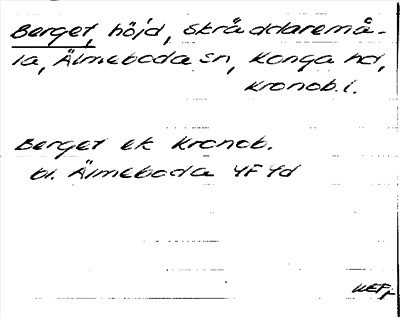 Berget, höjd, Skräddaremå-
la, Älmeboda sn, Konga hd,
Kronob. l.
Berget ek Kronob.
bl. Älmeboda 4F 4d